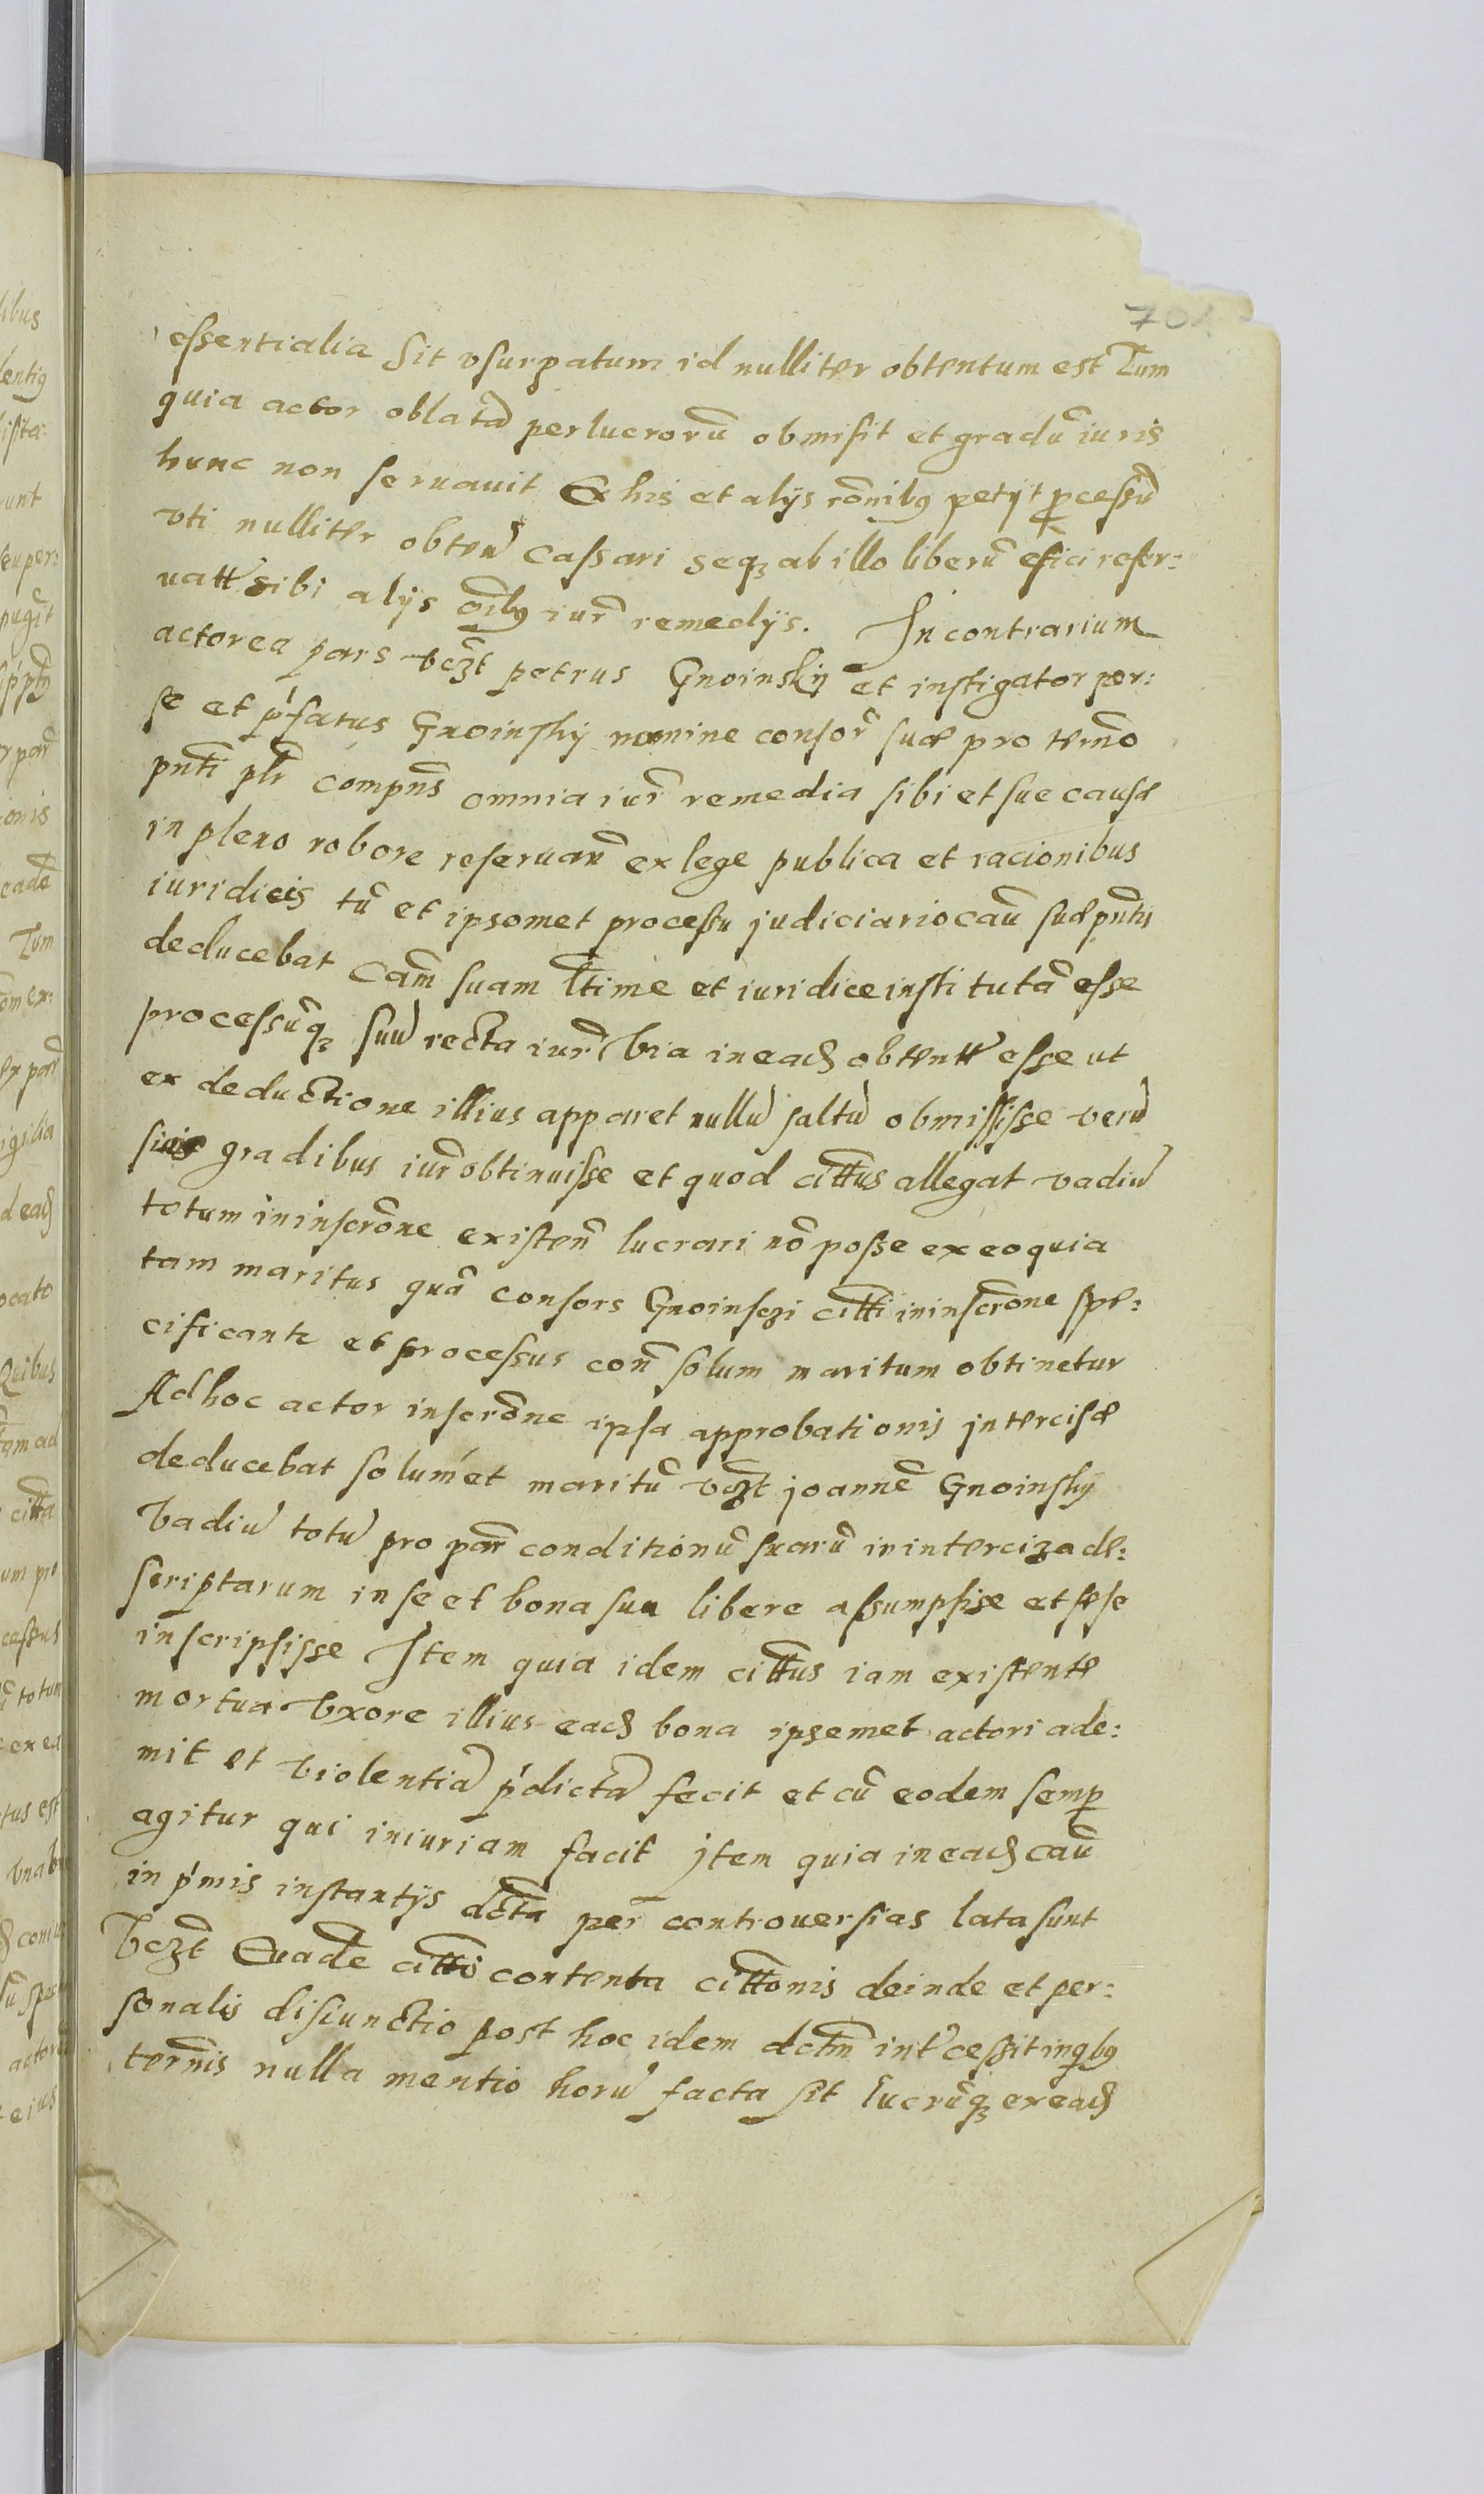 701
essentialia sit vsurpatum id nulliter obtentum est Tum
quia actor oblatā per lucrorū obmisit et gradū iuris
hunc non seruauit Ex his et alijs rōnibꝰ petijt ꝓcessū
vti nulliter obten̄ cassari seqꝫ ab illo liberū efici reser:
uatt sibi alijs oībꝰ iur̄ remedijs. In contrarium
actorea pars vcꝫt petrus Gnoinskÿ et instigator per:
se et p'fatus Gnoinskÿ nomine consor̄ suæ pro termō
pn̄ti plr̄ compn̄s omnia iur̄ remedia sibi et sue causæ
in pleno robore reseruan̄ ex lege publica et racionibus
iuridicis tū et ipsomet processu judiciario cau̅ suæ pn̄tis
deducebat Cam̄ suam lt̄ime et iuridice institutā esse
processūqꝫ suū recta iur̄ via in eadꝫ obtentt esse ut
ex deductione illius apparet nullū saltū obmississe verū
suis gradibus iur̄ obtinuisse et quod citt̄us allegat vadiū
totum in inscrōne existen̄ lucrari nō posse ex eo quia
tam maritus quā consors Gnoinsczi citt̄i in inscrōne spe:
cificantr et processus con̄ solum maritum obtinetur
Ad hoc actor inscrōne ipsa approbationis intercisæ
deducebat solum et maritū vcꝫt joannē Gnoinskÿ
Vadiū totū pro par̄ conditionū suarū in interciza de:
scriptarum in se et bona sua libere assumpsise et sese
inscripsisse Item quia idem citt̄us iam existente
mortua Vxore illius eadꝫ bona ipsemet actori ade:
mit et violentiā p'dictā fecit et cū eodem semꝑ
agitur qui iniuriam facit jtem quia in eadꝫ cau̅
in p'mis instantijs dct̄a per controuersias lata sunt
Vcꝫt Euade citt̄i contenta citt̄onis deinde et per:
sonalis disiunctio post hoc idem dctm̄ int'cessit in qbꝰ
termīs nulla mentio horū facta sit lucrūqꝫ ex eadꝫ